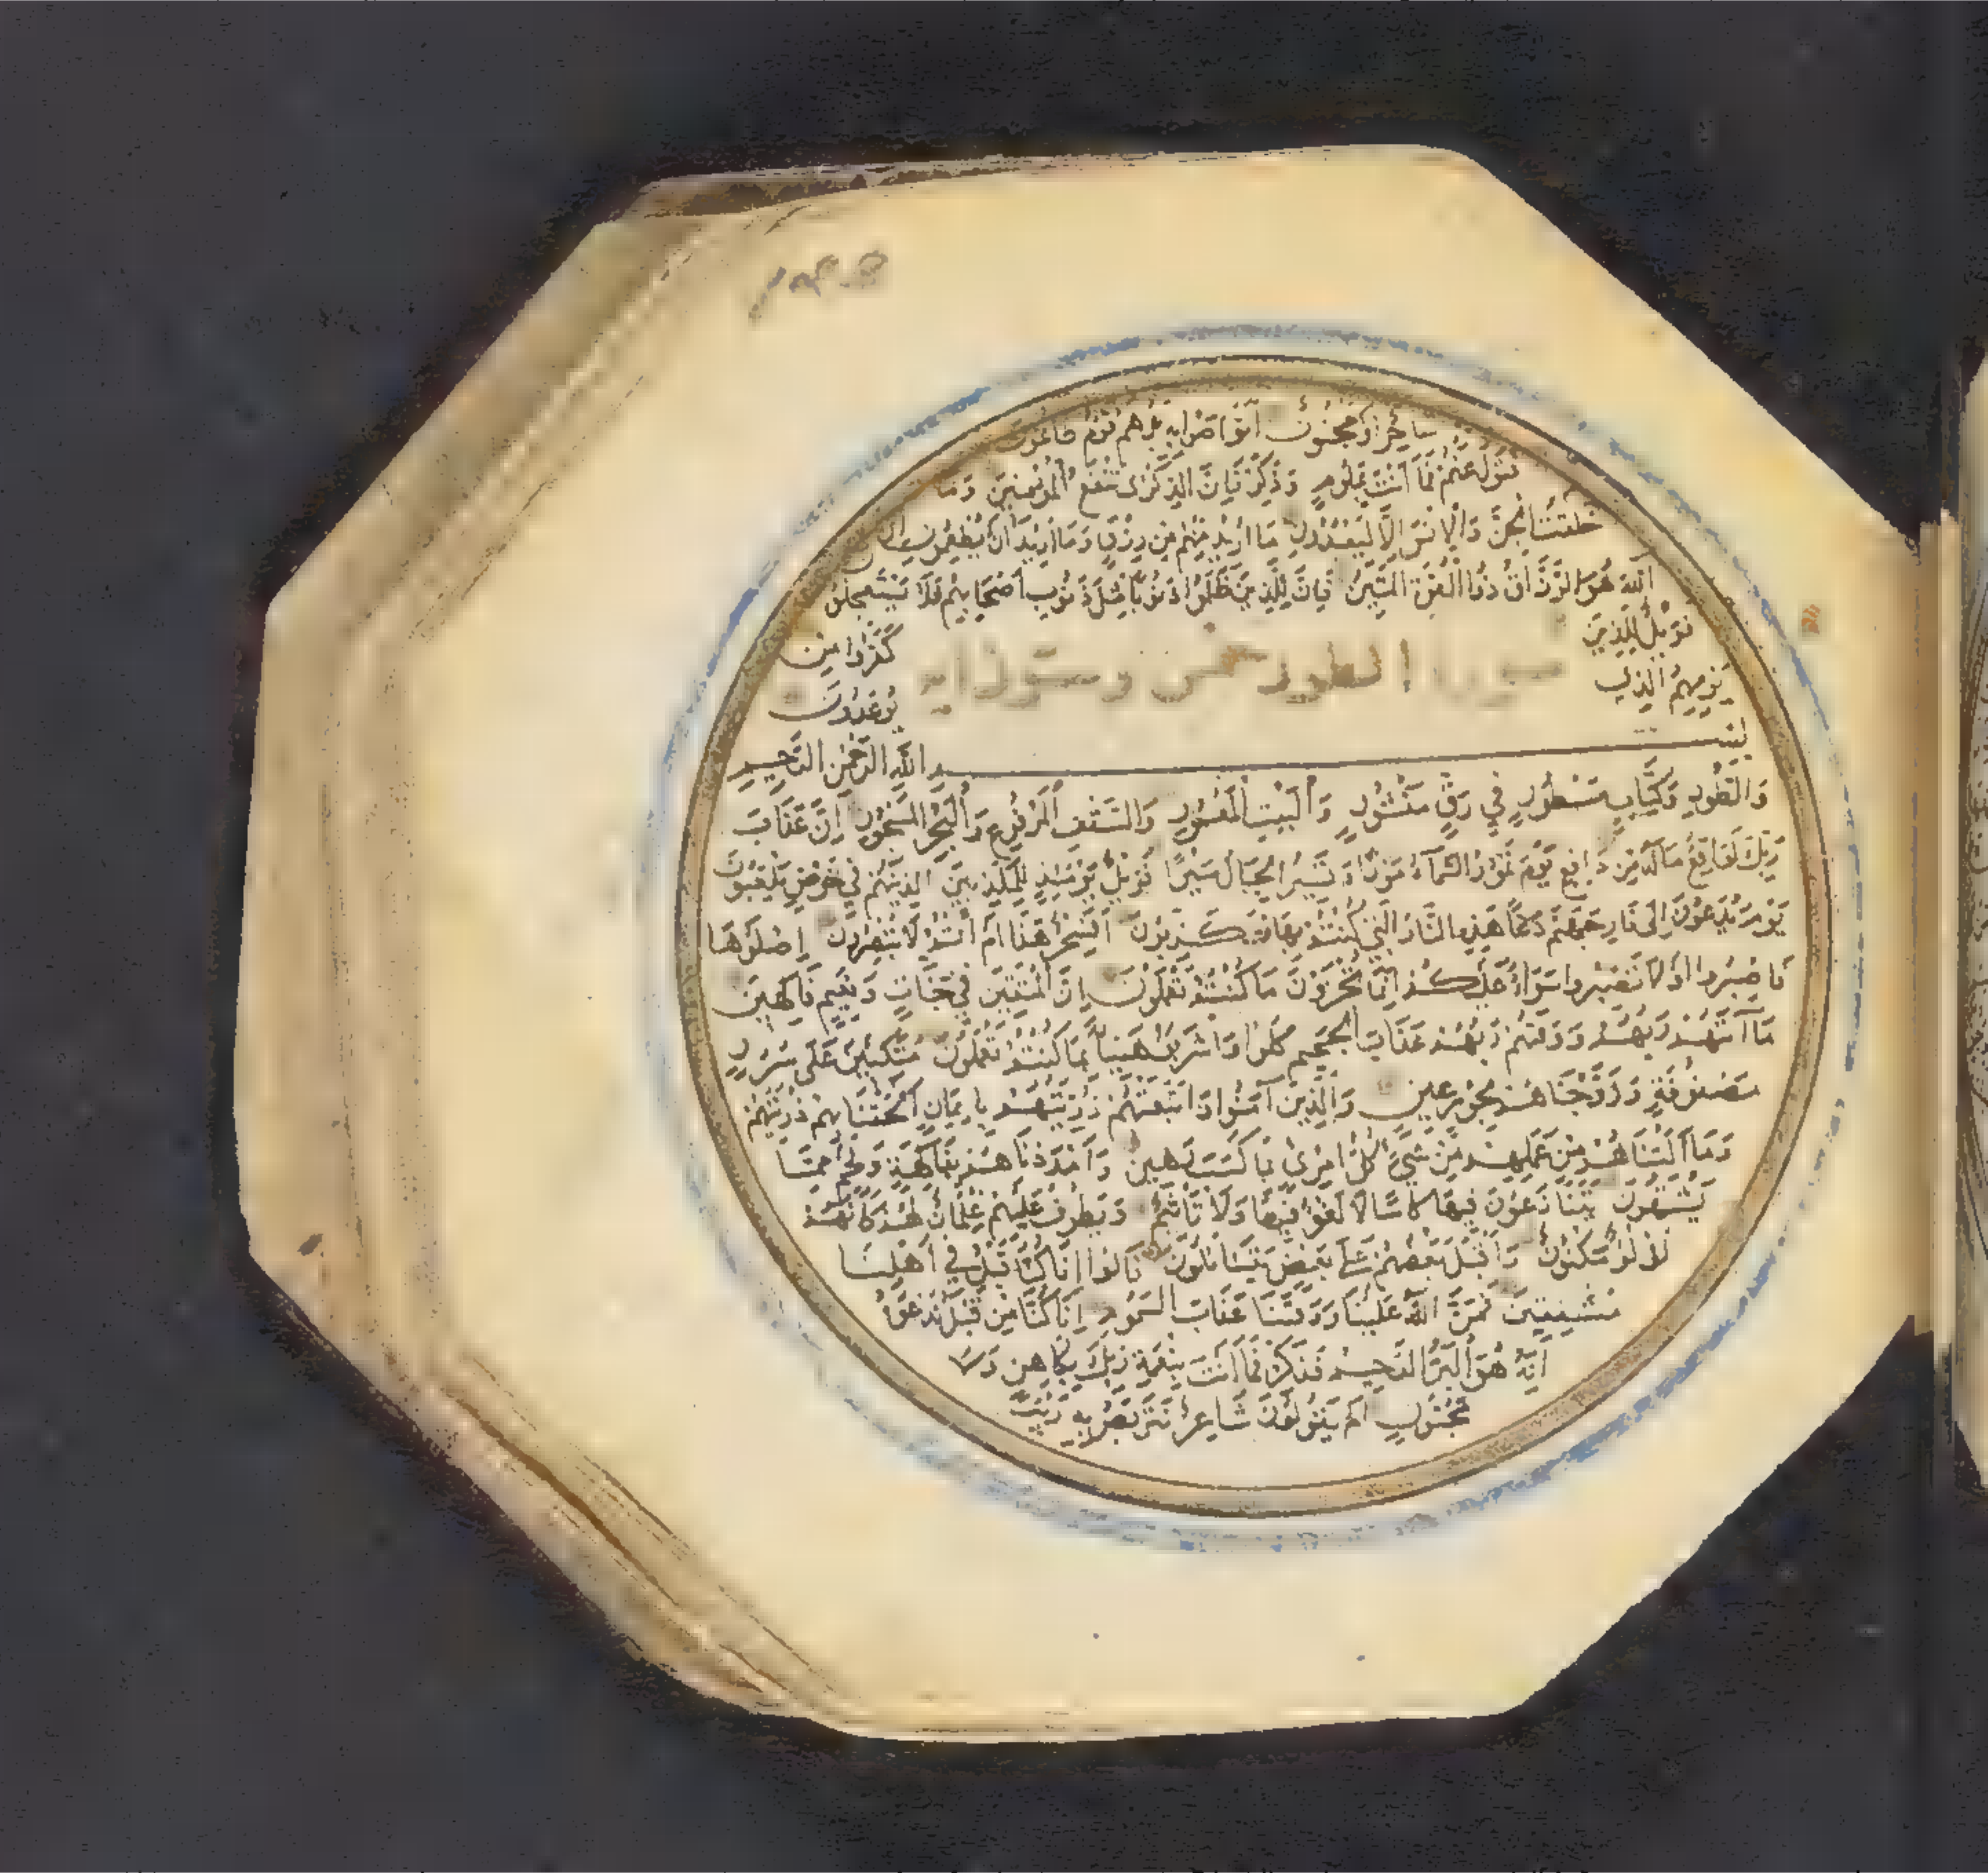 ساحر او مجنون اتواصوا به بل هم قوم طاغون
فتول عنهم فما انت بملوم وذكر فان الذكرى تنفع المؤمنين وما
خلقت الجن والانس الا ليعبدون ما اريد منهم من رزق وما اريد ان يطعمون ان
الله هو الرزاق ذو القوة المتين فان للذين ظلموا ذنوبا مثل ذنوب اصحابهم فلا يستعجلون
فويل للذين كفروا من
يومهم الذي يوعدون
سورة الطور وهي اية
بسم الله الرحمن الرحيم
والطور وكتاب مسطور في رق منشور والبيت المعمور والسقف المرفوع والبحر المسجور ان عذاب
ربك لواقع ماله من دافع يوم تمور السماء مورا وتسير الجبال سيرا فويل يومئذ للمكذبين الذين هم في خوض يلعبون
يوم يدعون الى نار جهنم دعا هذه النار التي كنتم بها تكذبون افسحر هذا ام انتم لا تبصرون اصلوها
فاصبروا او لا تصبروا سواء عليكم انما تجزون ما كنتم تعملون ان المتقين في جنات ونعيم فاكهين
بما آتتهم ربهم ووقتهم ربهم عذاب الجحيم كلوا واشربوا هنيئا بما كنتم تعملون متكئين على سرر
مصفوفة وزوجناهم بحور عين والذين آمنوا واتبعتهم ذريتهم بايمان الحقنا بهم ذريتهم
وما التناهم من عملهم من شيء كل امرئ بما كسب رهين وامددناهم بفاكهة ولحم مما
يشتهون يتنازعون فيها كاسا لا لغو فيها ولا تاثيم ويطوف عليهم غلمان لهم كانهم
لؤلؤ مكنون واقبل بعضهم على بعض يتساءلون قالوا انا كنا قبل في اهلنا
مشفقين فمن الله علينا ووقتنا عذاب السموم انا كنا من قبل ندعوه
انه هو البر الرحيم فذكر فما انت بنعمة ربك بكاهن ولا
مجنون ام يقولون شاعر نتربص به ريب